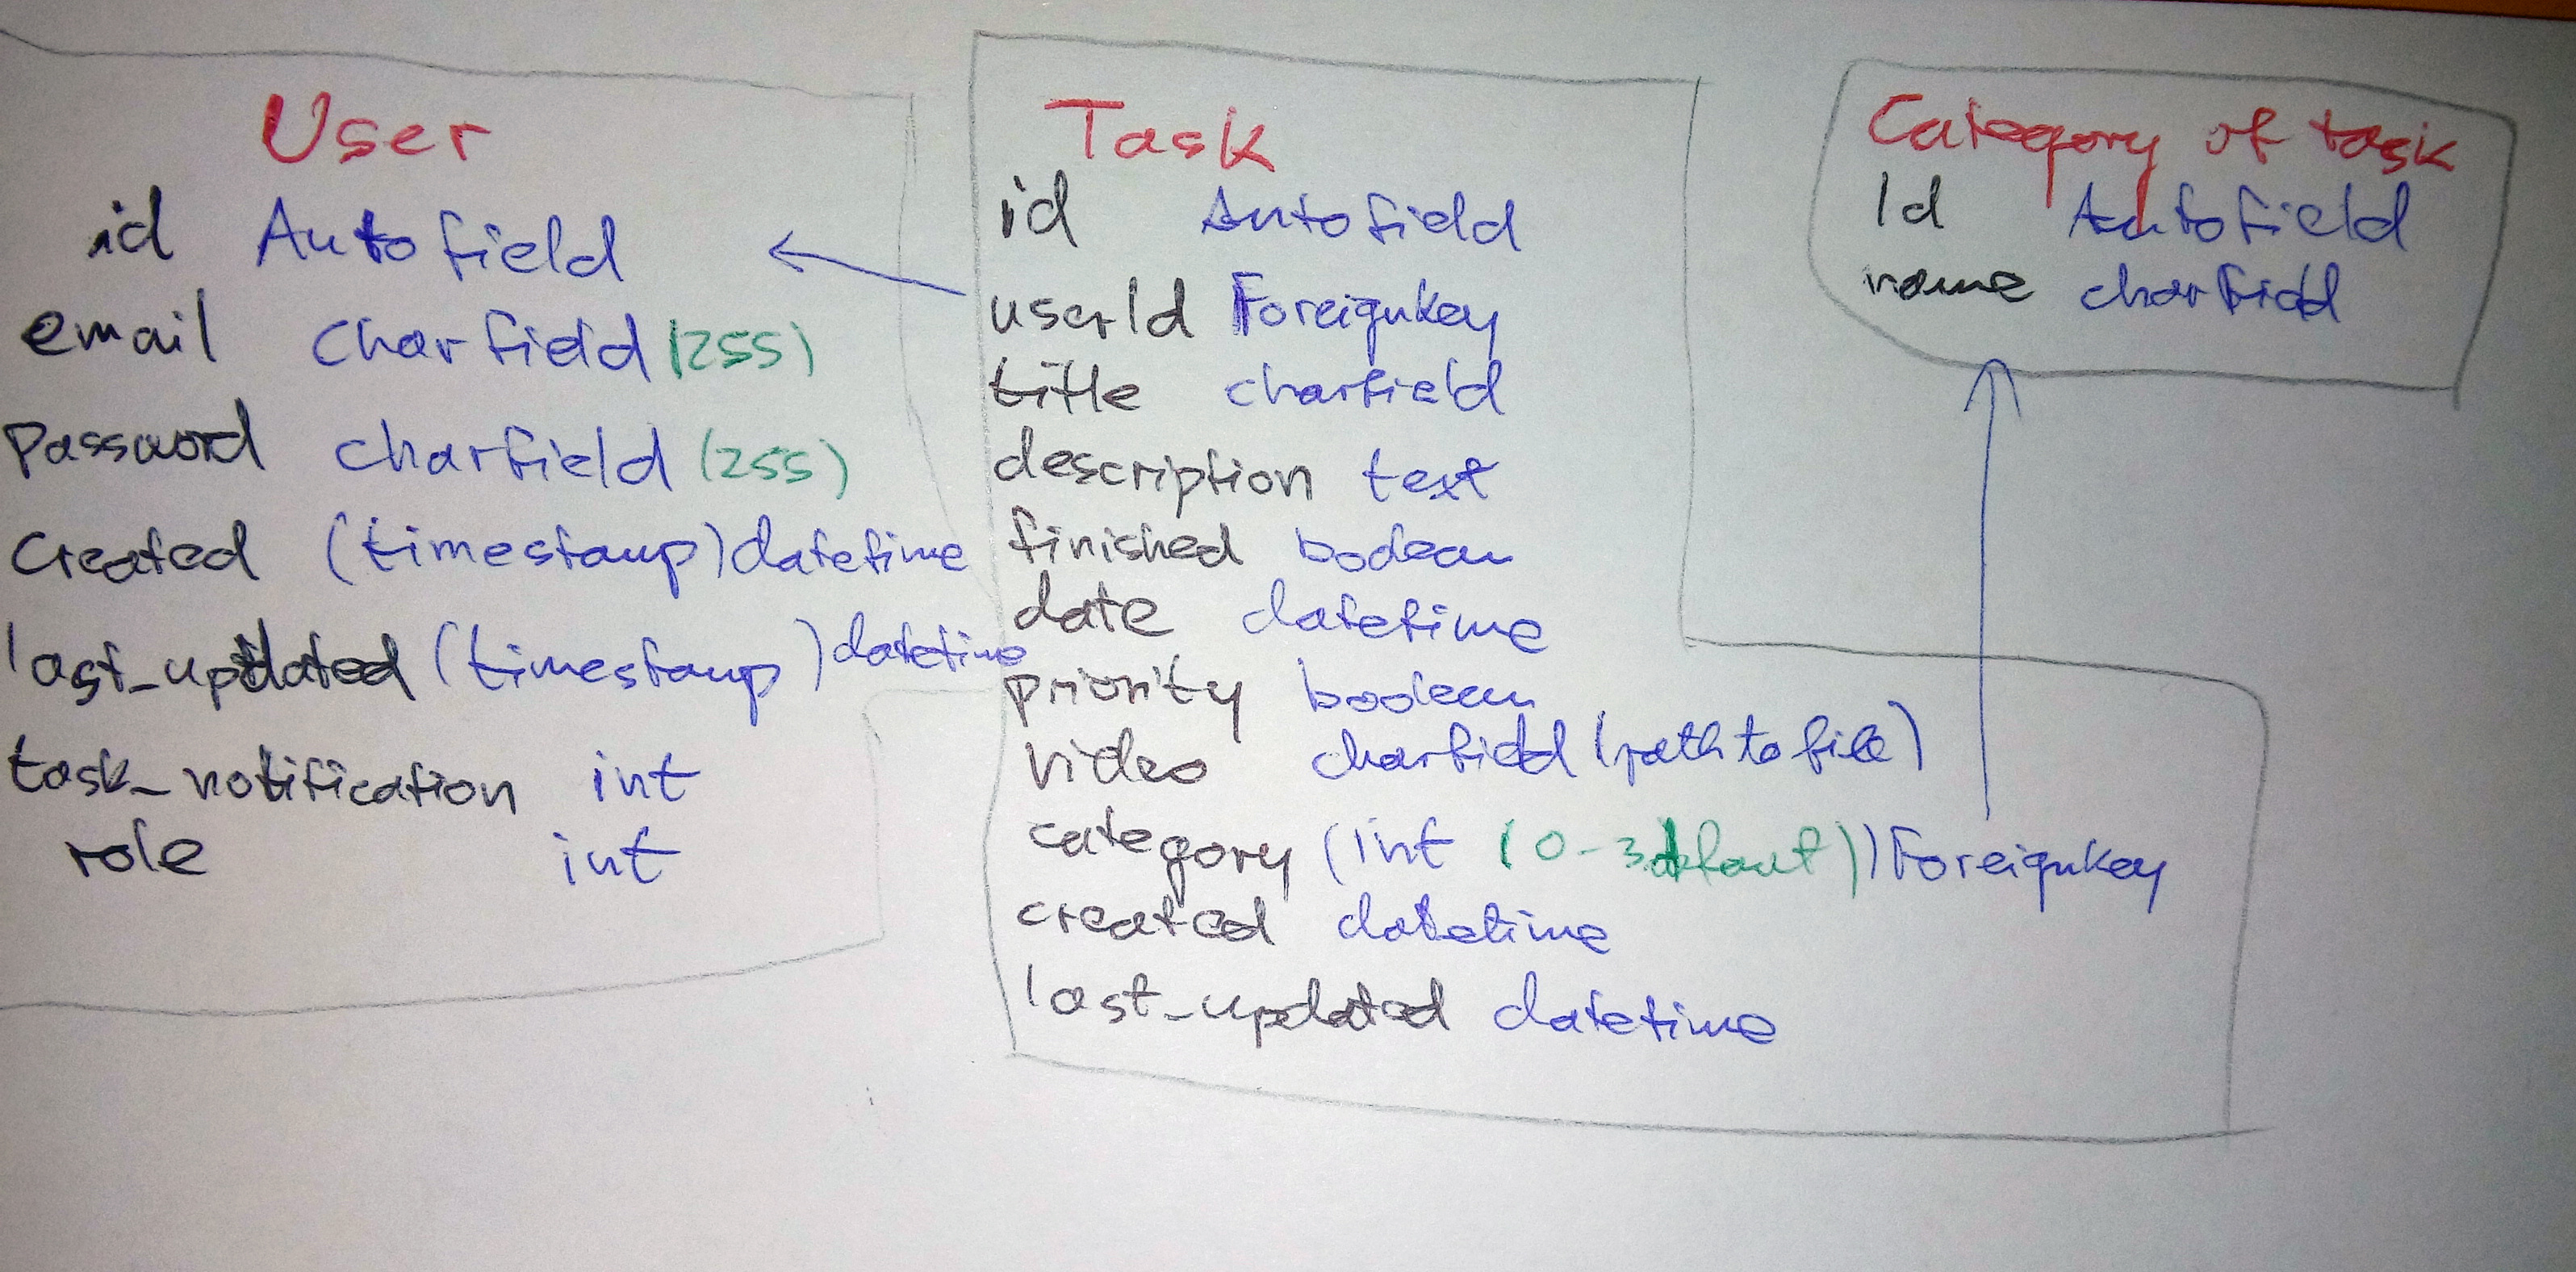 User
id Autofield
email Charfield (255)
Password charfield (255)
Created (timestamp) datetime
last_updated (timestamp) datetime
task_notification int
role int
Task
id Autofield
userId Foreignkey
title charfield
description text
finished boolean
date datetime
priority boolean
video charfield (path to file)
category (int (0-3 defaut)) Foreignkey
created datetime
last_updated datetime
Category of task
Id Autofield
name charfield